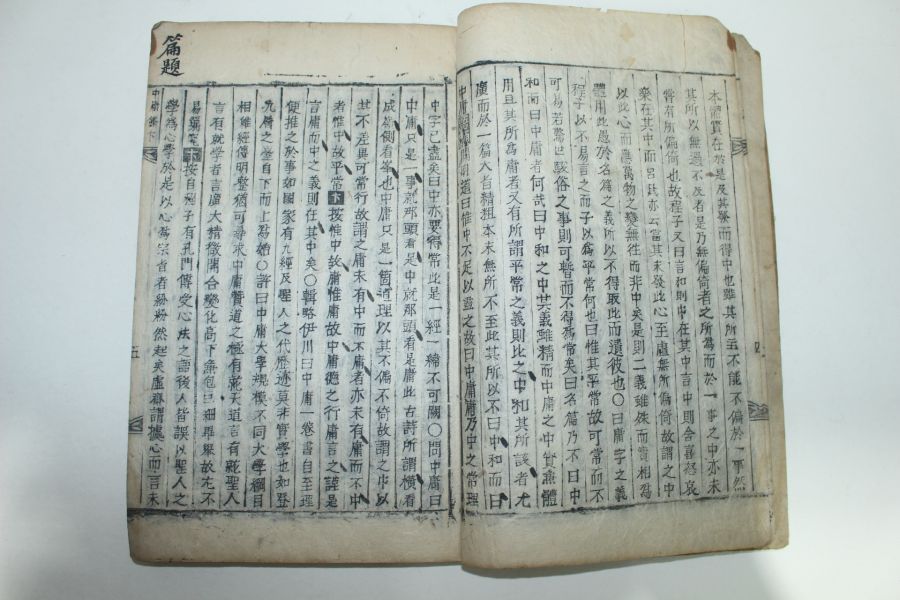 本體實在於是及其發而得中也雖其所主不能不偏於一事然
其所以無過不及者是乃無偏倚者之所為而於一事之中亦未
嘗有所偏倚也故程子又曰言和則中在其中言中則含喜怒哀
樂在其中而呂氏亦云當其未發此心至虛無所偏倚故謂之中
以此心而應萬物之變無往而非中矣是則二義雖殊而實相為
體用此愚於名篇之義所以不得取此而遺彼也〇曰庸字之義
程子以不易言之而子以為平常何也曰惟其平常故可常而不
可易若驚世駭俗之事則可暫而不得為常矣曰名篇乃不曰中
和而曰中庸者何哉曰中和之中其義雖精而中庸之中實無體
用且其所為庸者又有所謂平常之義則比之中和其所該者尤
廣而於一篇大旨精粗本末無所不至此其所以不曰中和而曰
中庸 明道曰惟中不足以盡之故曰中庸庸乃中之常理
中字已盡矣曰中亦要得常此是一經一緯不可闕〇問中庸曰
中庸只是一事就那頭看是中就那頭看是庸此古詩所謂橫看
成嶺側看峯也中庸只是一箇道理以其不偏不倚故謂之中以
其不差異可常行故謂之庸未有中而不庸者亦未有庸而不中
者惟中故平常 按惟中故庸惟庸故中庸德之行庸言之謹是
言庸而中之義則在其中矣〇輯略伊川曰中庸一卷書自至理
便推之於事如國家有九經及聖人之代歷迹莫非實學也如登
九層之臺自下而上為始〇許曰中庸大學規模不同大學綱目
相維經傳明整猶可尋求中庸贊道之極有就天道言有就聖人
言有就學者言廣大精微開合變化高下無包巨細畢舉故尤不
易窺究 按自程子有孔門傳受心法之語後人皆誤以聖人之
學為心學於是以心為宗者紛紛然起矣虛齋謂據心而言未
篇題
中庸
五
四